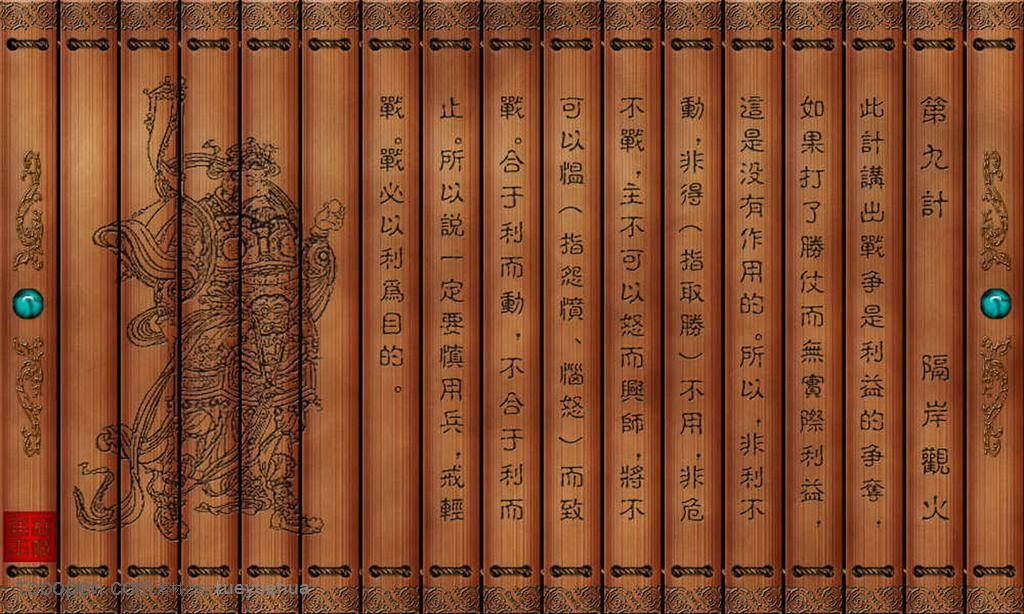 第九計 隔岸觀火
此計講出戰争是利益的争奪，
如果打了勝仗而無實際利益，
這是没有作用的。所以，非利不
動，非得（指取勝）不用，非危
不戰，主不可以怒而興師，將不
可以愠（指怨憤、惱怒）而致
戰。合于利而動，不合于利而
止。所以説一定要慎用兵，戒輕
戰。戰必以利爲目的。